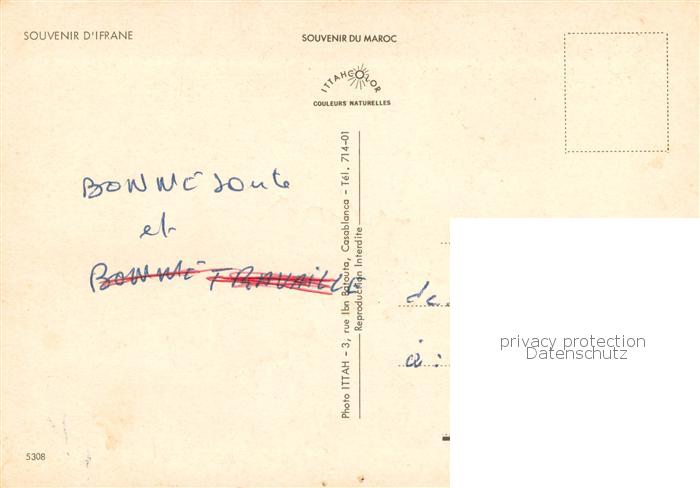 SOUVENIR D'IFRANE
SOUVENIR DU MAROC
ITTAHCOLOR
COULEURS NATURELLES
BONNE Sante
et
BONNE TRAVAILLE
Photo ITTAH - 3, rue Ibn Batouta, Casablanca - Tél. 714-01
Reproduction Interdite
de
à :
privacy protection
Datenschutz
5308